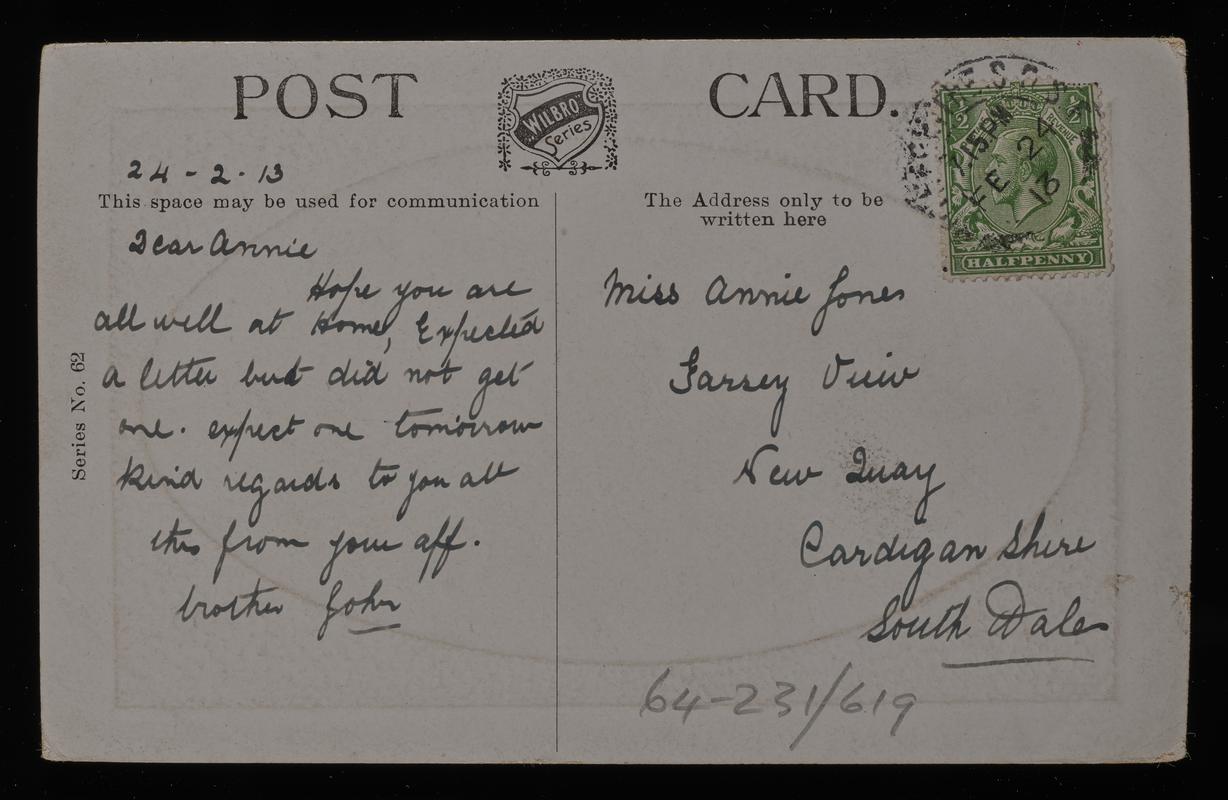 POST CARD.
WILBRO
Series
24-2-13
This space may be used for communication
Dear Annie
Hope you are
all well at home, Expected
a letter but did not get
one. expect one tomorrow
kind regards to you all
this from your aff.
brother John
Series No. 62
The Address only to be
written here
Miss Annie Jones
Farsey View
New Quay
Cardigan Shire
South Wales
64-231/619
1/2 1/2
REVENUE
HALFPENNY
15PM
FE 24
13